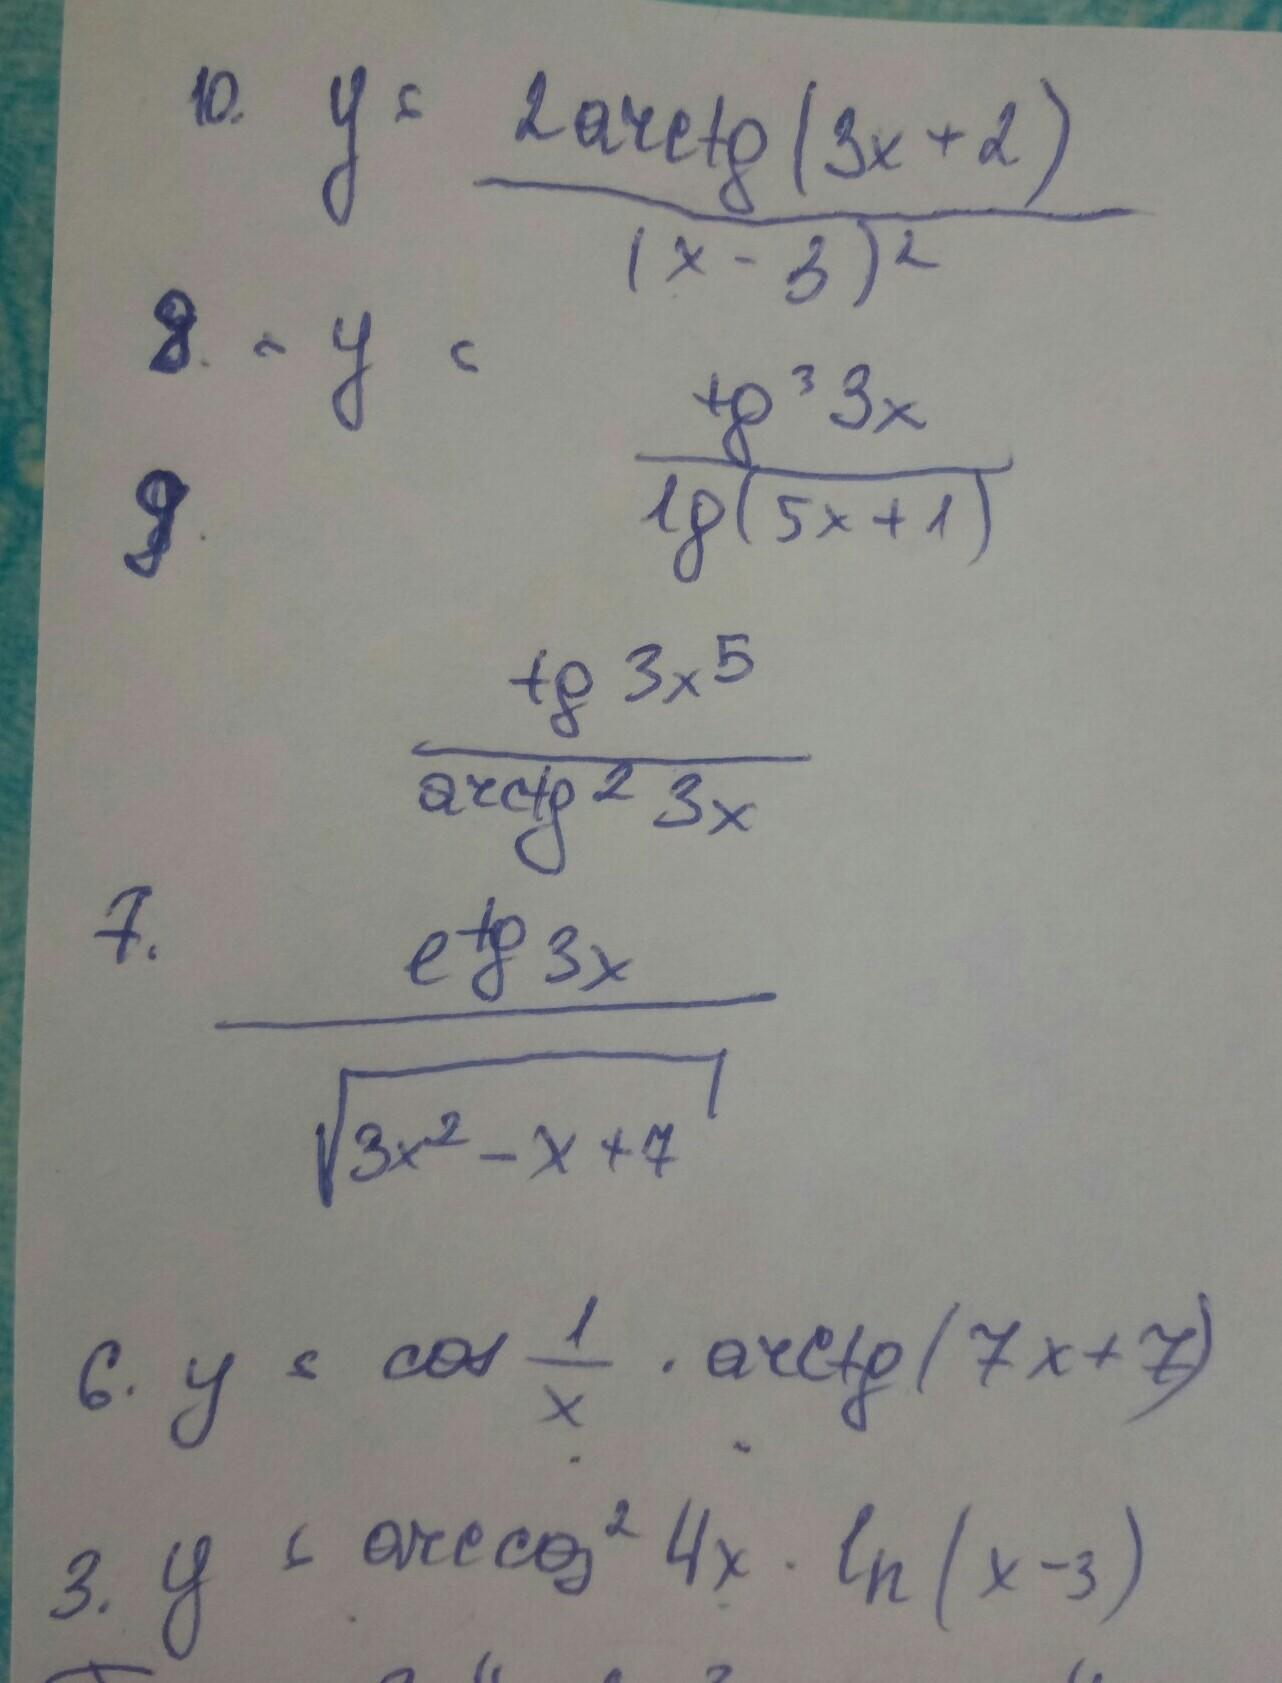 10. y = 2arctg(3x+2)
(x-3)²
8. - y =
tg³3x
lg(5x+1)
9.
tg 3x⁵
arctg² 3x
7.
e^tg 3x
√3x²-x+7
6. y = cos 1/x · arctg(7x+7)
3. y = arccos² 4x · ln(x-3)